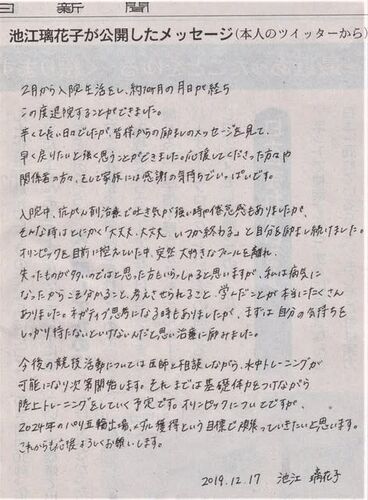 日 新 聞
池江璃花子が公開したメッセージ(本人のツイッターから)
2月から入院生活をし、約10ヶ月の月日が経ち
この度退院することができました。
辛くて長い日々でしたが、皆様からの励ましのメッセージを見て、
早く戻りたいと強く思うことができました。応援してくださった方々や
関係者の方々、そして家族には感謝の気持ちでいっぱいです。
入院中、抗がん剤治療で吐き気が強い時や倦怠感もありましたが、
そんな時はとにかく「大丈夫、大丈夫、いつか終わる」と自分を励まし続けました。
オリンピックを目前に控えていた中、突然 大好きなプールを離れ、
失ったものが多いのではと思った方もいらっしゃると思いますが、私は病気に
なったからこそ分かること、考えさせられること、学んだことが本当にたくさん
ありました。ネガティブ思考になる時もありましたが、まずは自分の気持ちを
しっかり持たないといけないんだと思い治療に励みました。
今後の競技活動については医師と相談しながら、水中トレーニングが
可能になり次第開始します。それまでは基礎体力をつけながら
陸上トレーニングをしていく予定です。オリンピックについてですが、
2024年のパリ五輪出場、メダル獲得という目標で頑張っていきたいと思います。
これからも応援よろしくお願いします。
2019.12.17 池江 璃花子